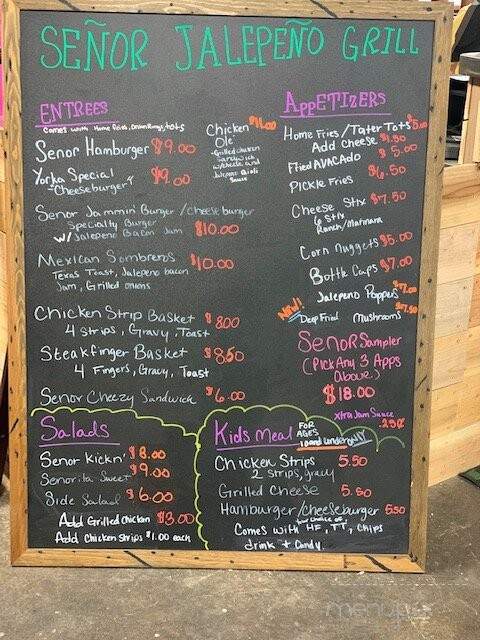 SEÑOR JALEPEÑO GRILL
ENTREES
Comes with Home Fries, Onion Rings, tots
Senor Hamburger $9.00
Yorka Special $9.00
"Cheeseburger"
Senor Jammin' Burger / cheeseburger
Specialty Burger
w/ Jalepeno Bacon Jam $10.00
Mexican Sombreros $10.00
Texas Toast, Jalapeno bacon
Jam, Grilled onions
Chicken Strip Basket $8.00
4 strips, Gravy, Toast
Steakfinger Basket $8.50
4 Fingers, Gravy, Toast
Senor Cheezy Sandwich $6.00
Chicken $11.00
Ole'
-Grilled chicken
Sandwich
w/cheese and
Jalepeno Aioli
Sauce
APPETIZERS
Home Fries / Tater Tots $5.00
Add cheese $1.50
Fried AVACADO $5.00
PICKLE FRIES $6.50
Cheese Stix $7.50
6 Stix
Ranch/Marinara
Corn Nuggets $5.00
Bottle Caps $7.00
Jalepeno Poppers $7.00
NEW! Deep Fried Mushrooms $7.50
SENOR Sampler
(Pick Any 3 Apps
above)
$18.00
xtra Jam Sauce
.25¢
Salads
Senor Kickn' $8.00
Senorita Sweet $9.00
Side Salad $6.00
Add Grilled chicken $3.00
Add Chicken Strips $1.00 each
Kids Meal FOR AGES 10 and under only!!
Chicken Strips 5.50
2 strips, gravy
Grilled Cheese 5.50
Hamburger/cheeseburger 5.50
your choice of
Comes with HF, TT, Chips
drink + Candy.
menupix